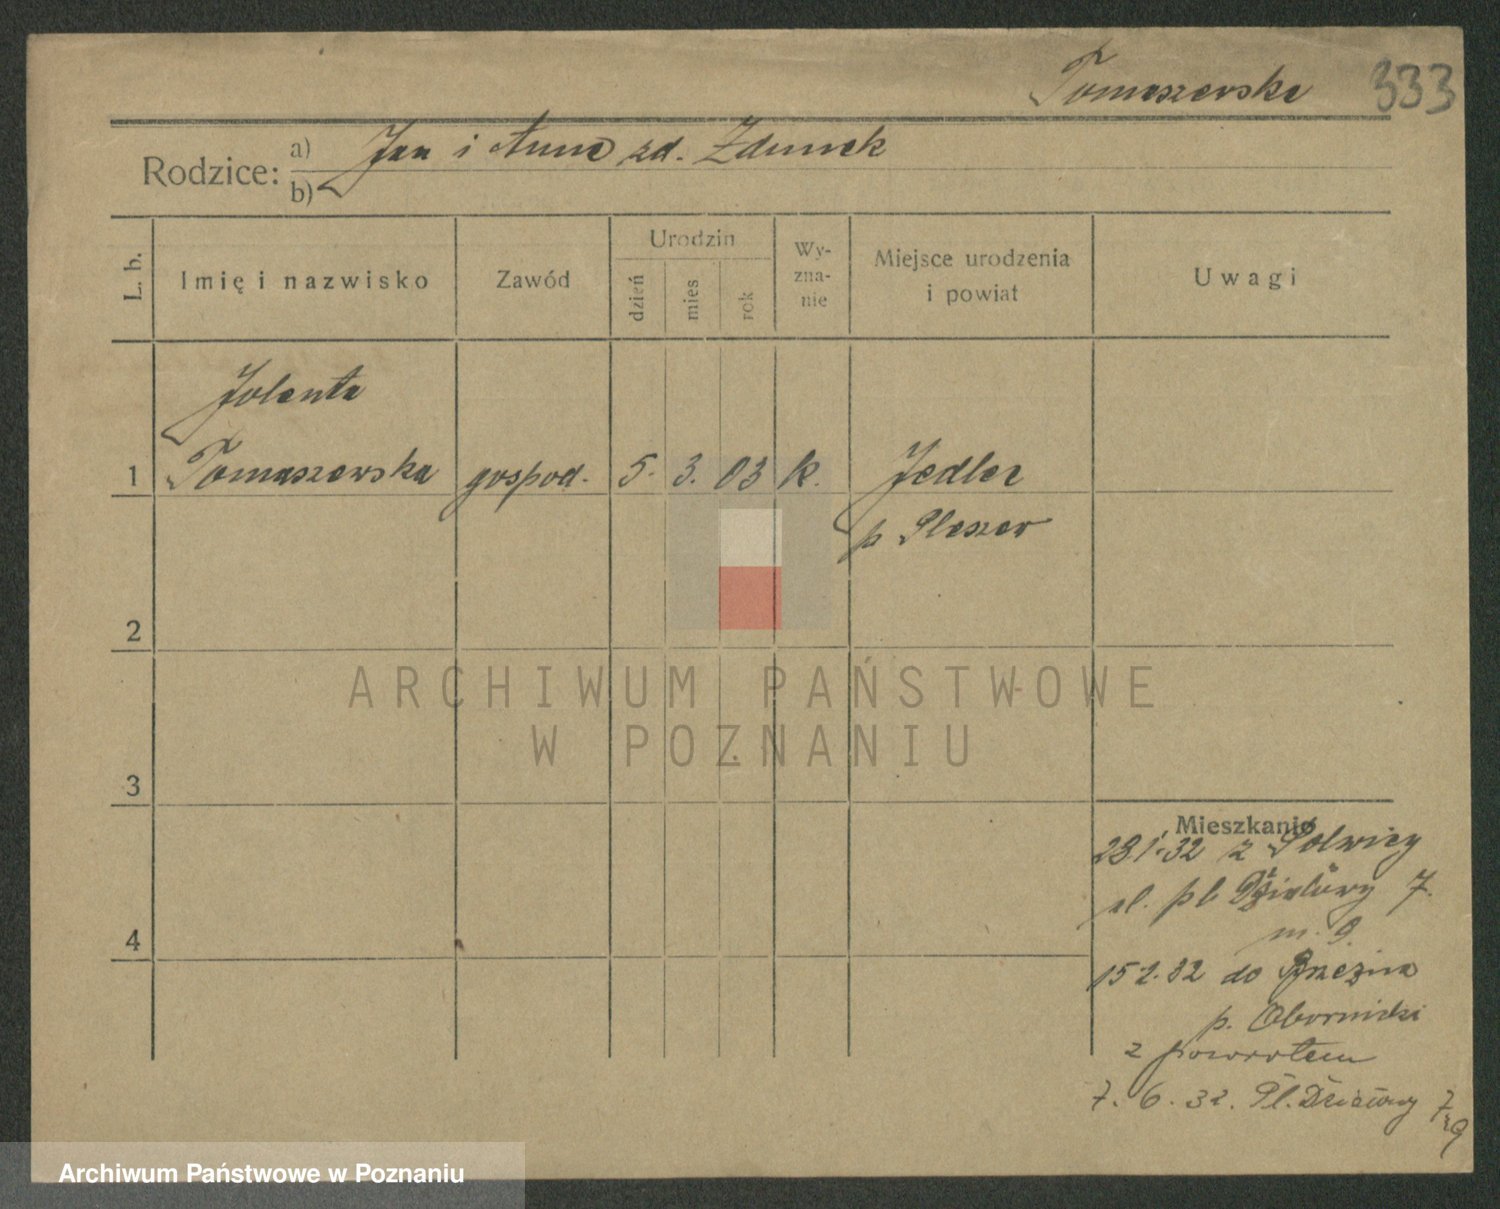 Tomaszewska 333
Rodzice: a) Jan i Anna zd. Zdunek
b)
L. b.
Imię i nazwisko
Zawód
Urodzin
dzień
mies
rok
Wy-
zna-
nie
Miejsce urodzenia
i powiat
Uwagi
Jolenta
1 Tomaszewska gospod. 5. 3. 03 k. Jedlec
p Pleszew
2
3
4
ARCHIWUM PAŃSTWOWE
W POZNANIU
Mieszkanie
23.1.32 z
pl. Działowy 7.
m. 9.
15 2.32 do
p. Obornicki
z powrotem
7. 6. 32. Pl. Działowy 7
Archiwum Państwowe w Poznaniu